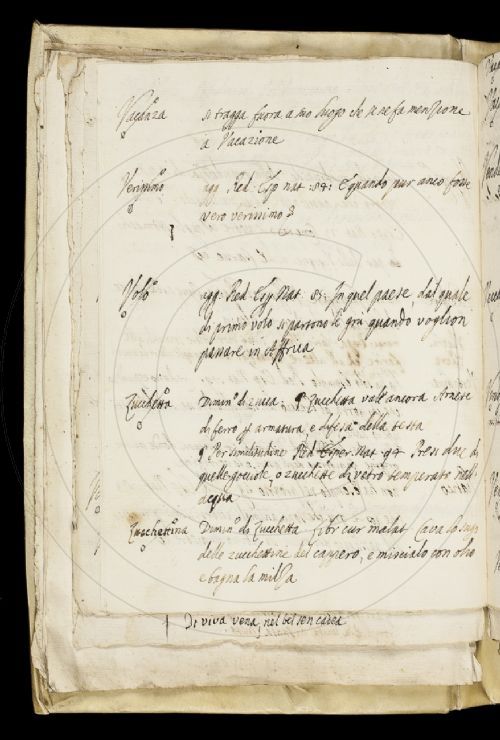 Vacanza si tragga fuora a suo luogo che se ne fa menzione
a Vacazione
Verissimo agg. Red. Esp. nat. 84: E quando pur anco fosse
vero verissimo
Volo agg: Red. Esp. Nat. 81. In quel paese, dal quale
di primo volo si partono le gru quando voglion
passare in Affrica
Zucchetta Dimin.o di zucca: ¶ Zucchetta vale ancora Arnese
di ferro p armatura e difesa della testa
¶ Per similitudine Red. Esper. Nat. 94 Presi due di
quelle gocciole, o zucchette di vetro temperato nell'
acqua
Zucchettina Dimin.o di Zucchetta Libr cur malat Cava lo sugo
delle zucchettine del cappero, e mischialo con olio
e bagna la milza
Di viva vena, nel bel sen cadea